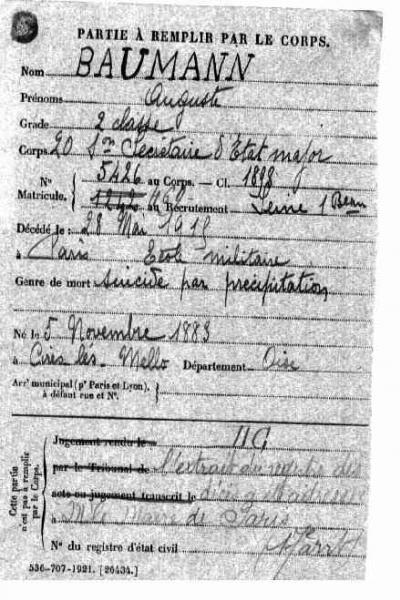 PARTIE À REMPLIR PAR LE CORPS.
Nom BAUMANN
Prénoms Auguste
Grade 2 classe
Corps 20 Son Secretaire d'Etat major
N° 5426 au Corps. — Cl. 1898
Matricule. au Recrutement Seine 1 Beau
Décédé le 28 Mai 191
à Paris Ecole militaire
Genre de mort suicide par précipitation
Né le 5 Novembre 1883
à Cires les Mello Département Oise
Arrt municipal (pr Paris et Lyon),
à défaut rue et N°.
Cette partie n'est pas à remplir par le Corps.
Jugement rendu le
par le Tribunal de l'extrait du
acte ou jugement transcrit le
à Mr le Maire de Paris
N° du registre d'état civil
536-707-1921. [26434.]